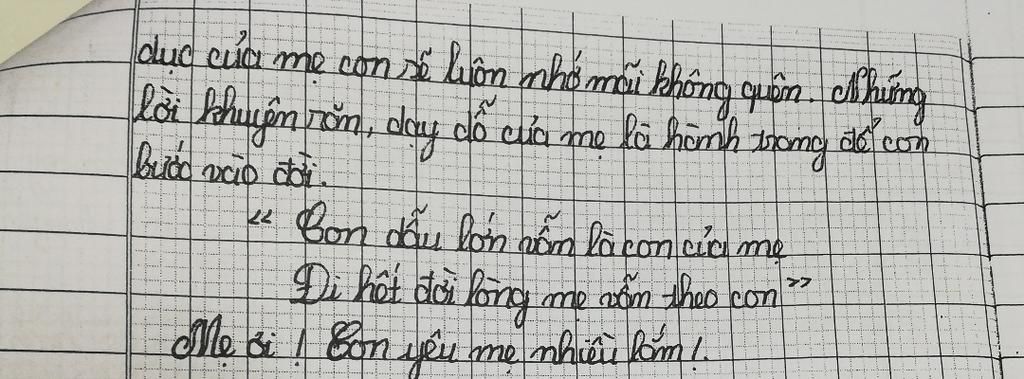 dục của mẹ con sẽ luôn nhớ mãi không quên. Những
lời khuyên răn, dạy dỗ của mẹ là hành trang để con
bước vào đời.
" Con dẫu lớn vẫn là con của mẹ
Đi hết đời lòng mẹ vẫn theo con "
Mẹ ơi ! Con yêu mẹ nhiều lắm !.